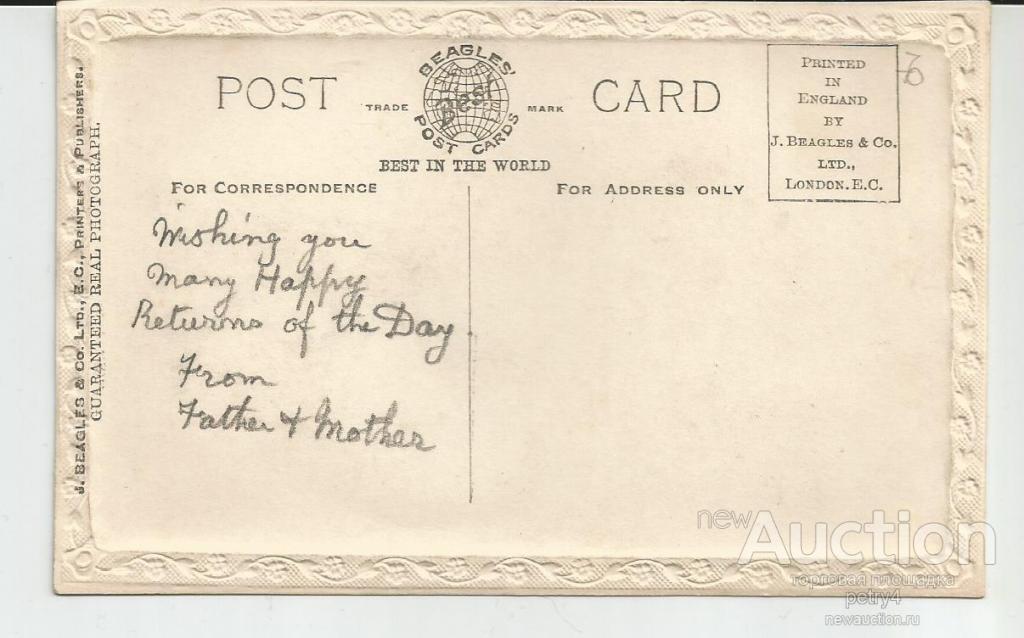 BEAGLES'
Best
POST CARDS
POST CARD
TRADE MARK
BEST IN THE WORLD
PRINTED
IN
ENGLAND
BY
J. BEAGLES & CO.
LTD.,
LONDON.E.C.
FOR CORRESPONDENCE
FOR ADDRESS ONLY
Wishing you
Many Happy
Returns of the Day.
From
Father & Mother
J. BEAGLES & CO. LTD., E.C., PRINTERS & PUBLISHERS.
GUARANTEED REAL PHOTOGRAPH.
newAuction
торговая площадка
petry4
newauction.ru